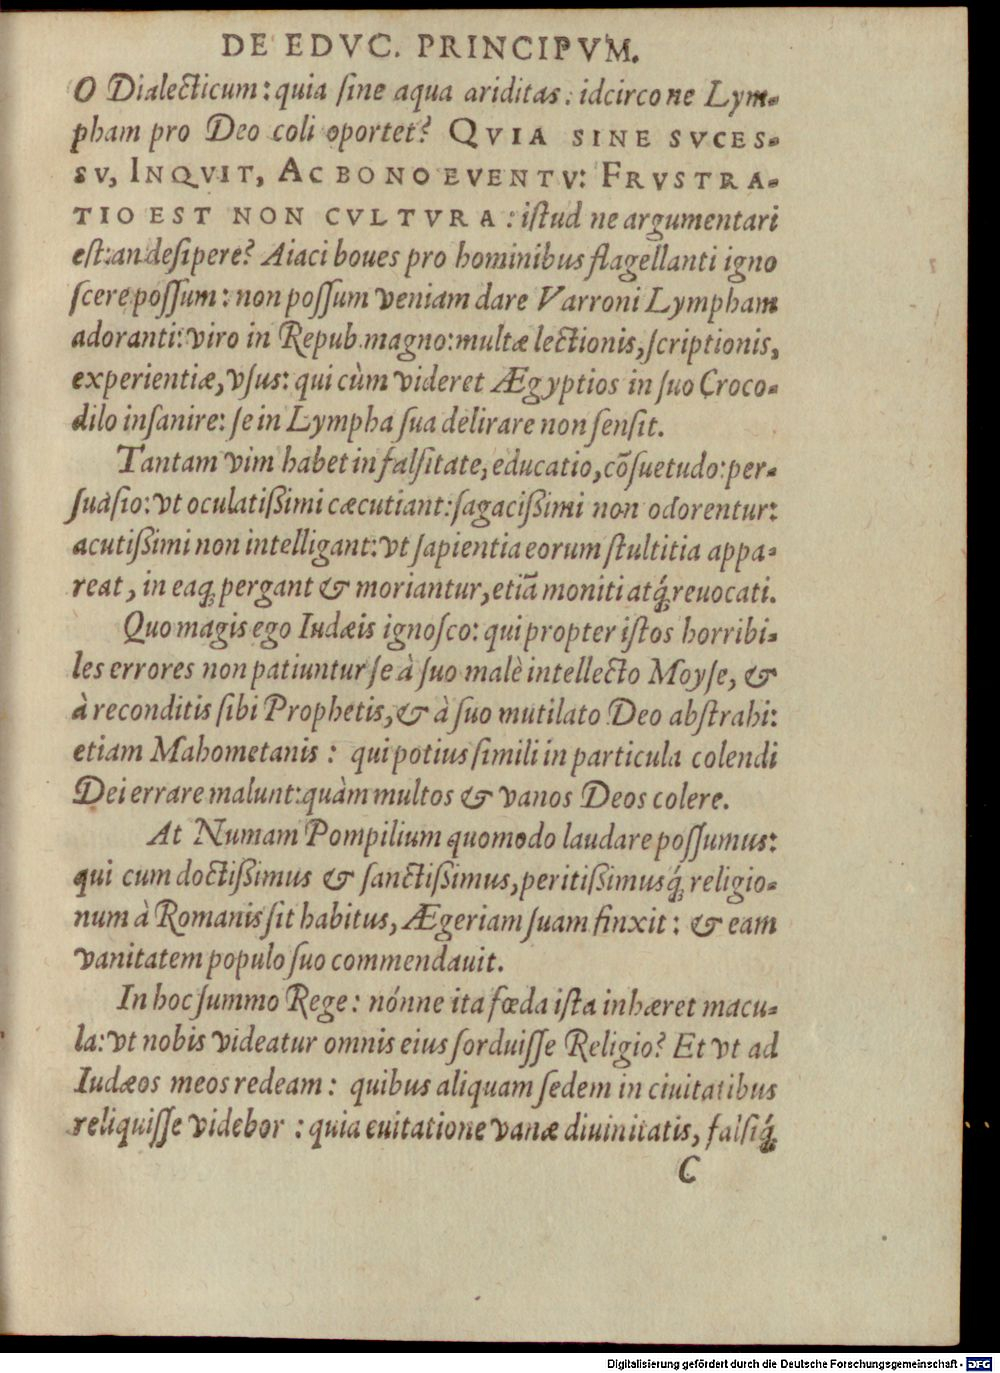 DE EDVC. PRINCIPVM.
O Dialecticum: quia sine aqua ariditas: idcirco ne Lym-
pham pro Deo coli oportet? QVIA SINE SVCES-
SV, INQVIT, AC BONO EVENTV: FRVSTRA-
TIO EST NON CVLTVRA: istud ne argumentari
est: an desipere? Aiaci boues pro hominibus flagellanti igno
scere possum: non possum veniam dare Varroni Lympham
adoranti: viro in Repub. magno: multæ lectionis, scriptionis,
experientiæ, vsus: qui cùm videret Ægyptios in suo Croco-
dilo insanire: se in Lympha sua delirare non sensit.
Tantam vim habet in falsitate, educatio, cõsuetudo: per-
suasio: vt oculatißimi cæcutiant: sagacißimi non odorentur:
acutißimi non intelligant: vt sapientia eorum stultitia appa-
reat, in eaq́ pergant & moriantur, etiã moniti atq́ reuocati.
Quo magis ego Iudæis ignosco: qui propter istos horribi-
les errores non patiuntur se à suo malè intellecto Moyse, &
à reconditis sibi Prophetis, & à suo mutilato Deo abstrahi:
etiam Mahometanis: qui potius simili in particula colendi
Dei errare malunt: quàm multos & vanos Deos colere.
At Numam Pompilium quomodo laudare possumus:
qui cum doctißimus & sanctißimus, peritißimusq́ religio-
num à Romanis sit habitus, Ægeriam suam finxit: & eam
vanitatem populo suo commendauit.
In hoc summo Rege: nónne ita fœda ista inhæret macu-
la: vt nobis videatur omnis eius sorduisse Religio? Et vt ad
Iudæos meos redeam: quibus aliquam sedem in ciuitatibus
reliquisse videbor: quia euitatione vanæ diuinitatis, falsiq́
C
Digitalisierung gefördert durch die Deutsche Forschungsgemeinschaft - DFG